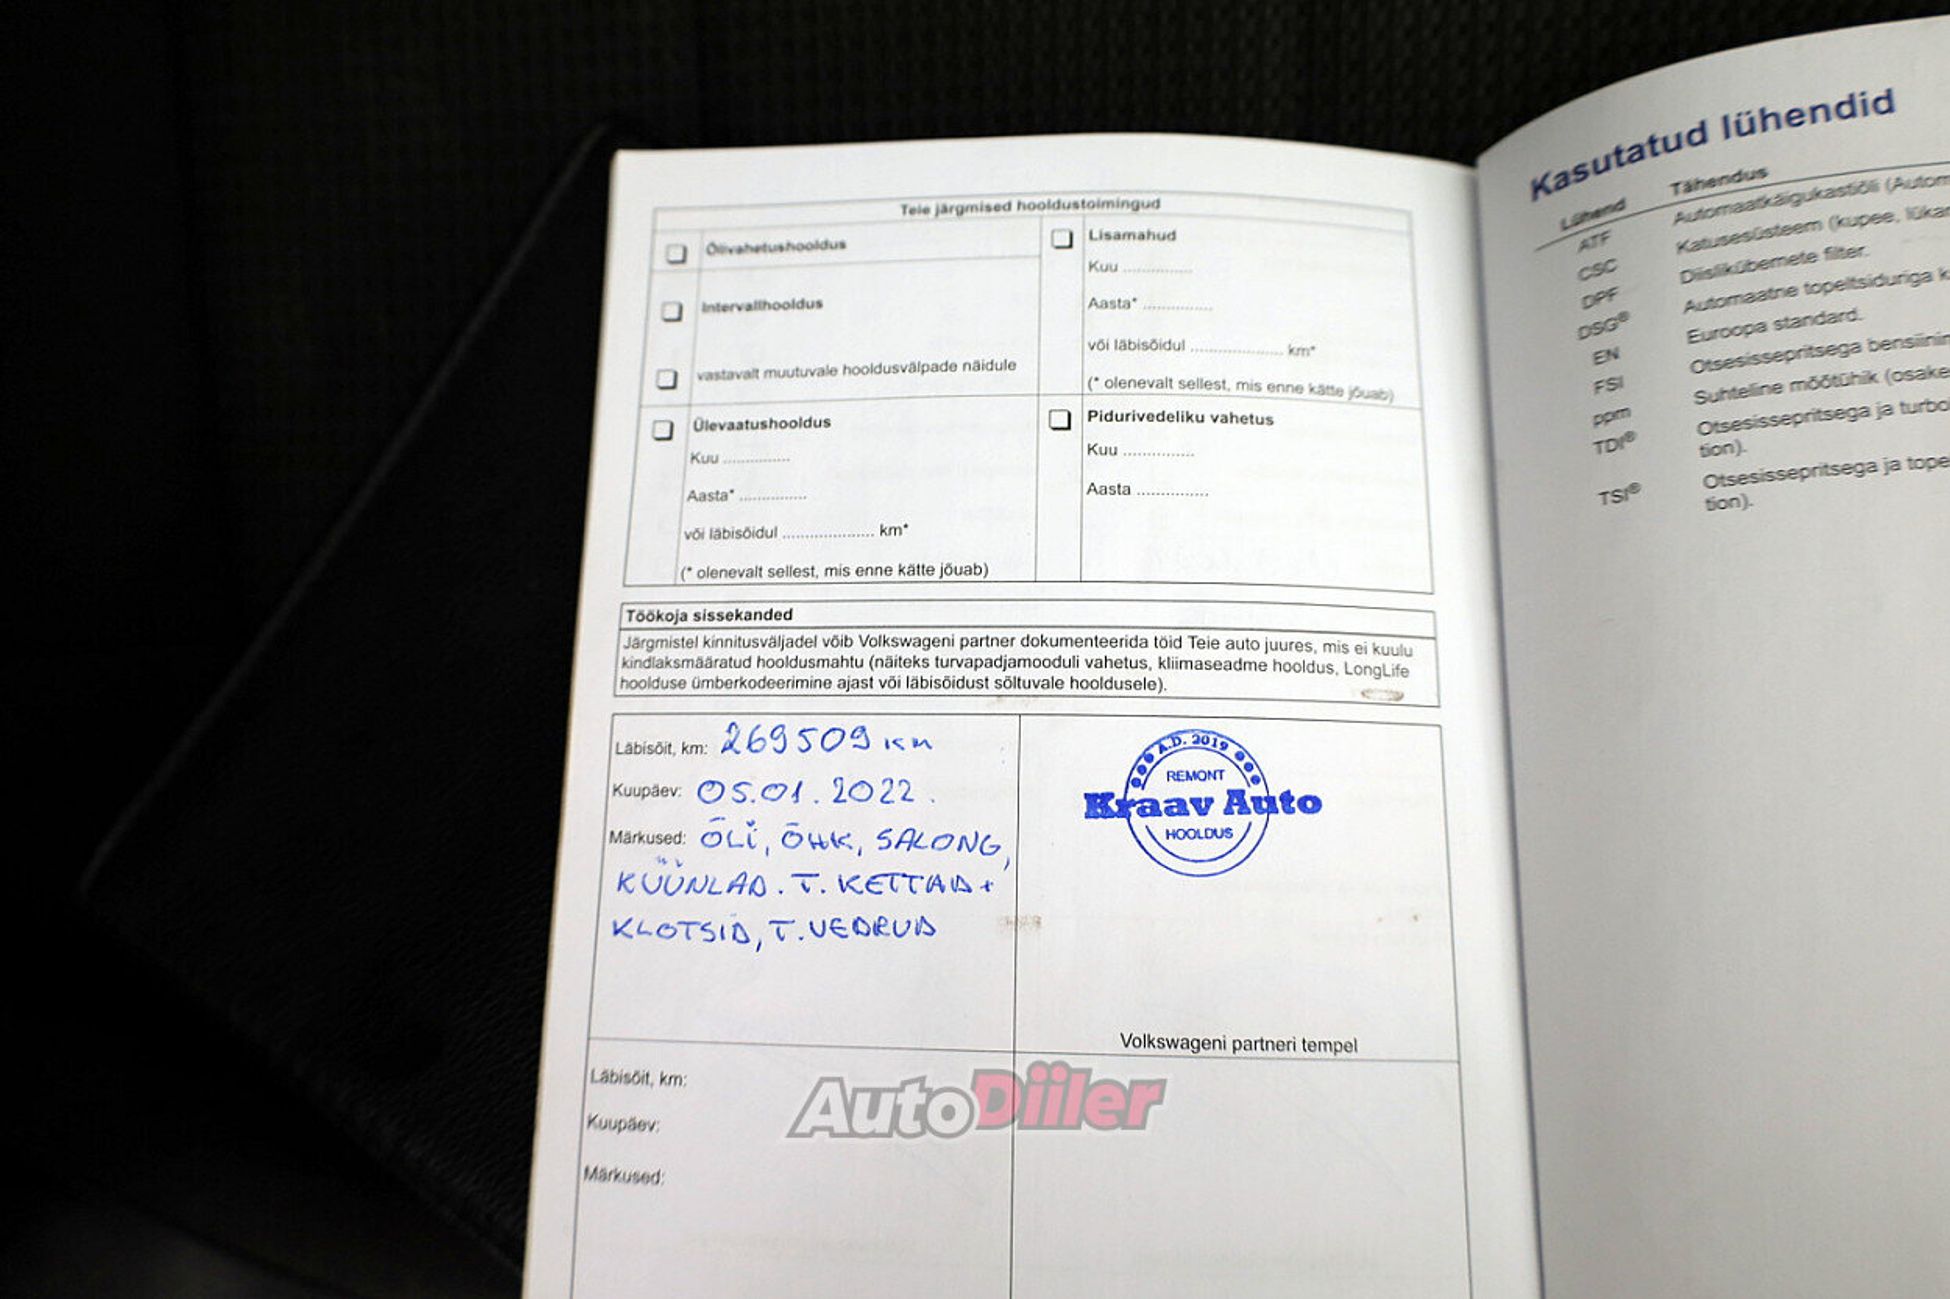 Teie järgmised hooldustoimingud
Õlivahetushooldus
Intervallhooldus
vastavalt muutuvale hooldusvälpade näidule
Ülevaatushooldus
Kuu ...............
Aasta* ...............
või läbisõidul .................... km*
(* olenevalt sellest, mis enne kätte jõuab)
Lisamahud
Kuu ...............
Aasta* ...............
või läbisõidul .................... km*
(* olenevalt sellest, mis enne kätte jõuab)
Pidurivedeliku vahetus
Kuu ...............
Aasta ...............
Töökoja sissekanded
Järgmistel kinnitusväljadel võib Volkswageni partner dokumenteerida töid Teie auto juures, mis ei kuulu
kindlaksmääratud hooldusmahtu (näiteks turvapadjamooduli vahetus, kliimaseadme hooldus, LongLife
hoolduse ümberkodeerimine ajast või läbisõidust sõltuvale hooldusele).
Läbisõit, km: 269509 km
Kuupäev: 05.01.2022.
Märkused: ÕLI, ÕHK, SALONG,
KÜÜNLAD. T. KETTAD +
KLOTSID, T. VEDRUD
A.D. 2019
REMONT
Kraav Auto
HOOLDUS
Volkswageni partneri tempel
Läbisõit, km:
Kuupäev:
Märkused:
AutoDiiler
Kasutatud lühendid
Lühend Tähendus
ATF Automaatkäigukastiõli (Autom
CSC Katusesüsteem (kupee, lükan
DPF Diislikübemete filter.
DSG® Automaatne topeltsiduriga k
EN Euroopa standard.
FSI Otsesissepritsega bensiinin
ppm Suhteline mõõtühik (osake
TDI® Otsesissepritsega ja turbo
tion).
TSI® Otsesissepritsega ja tope
tion).